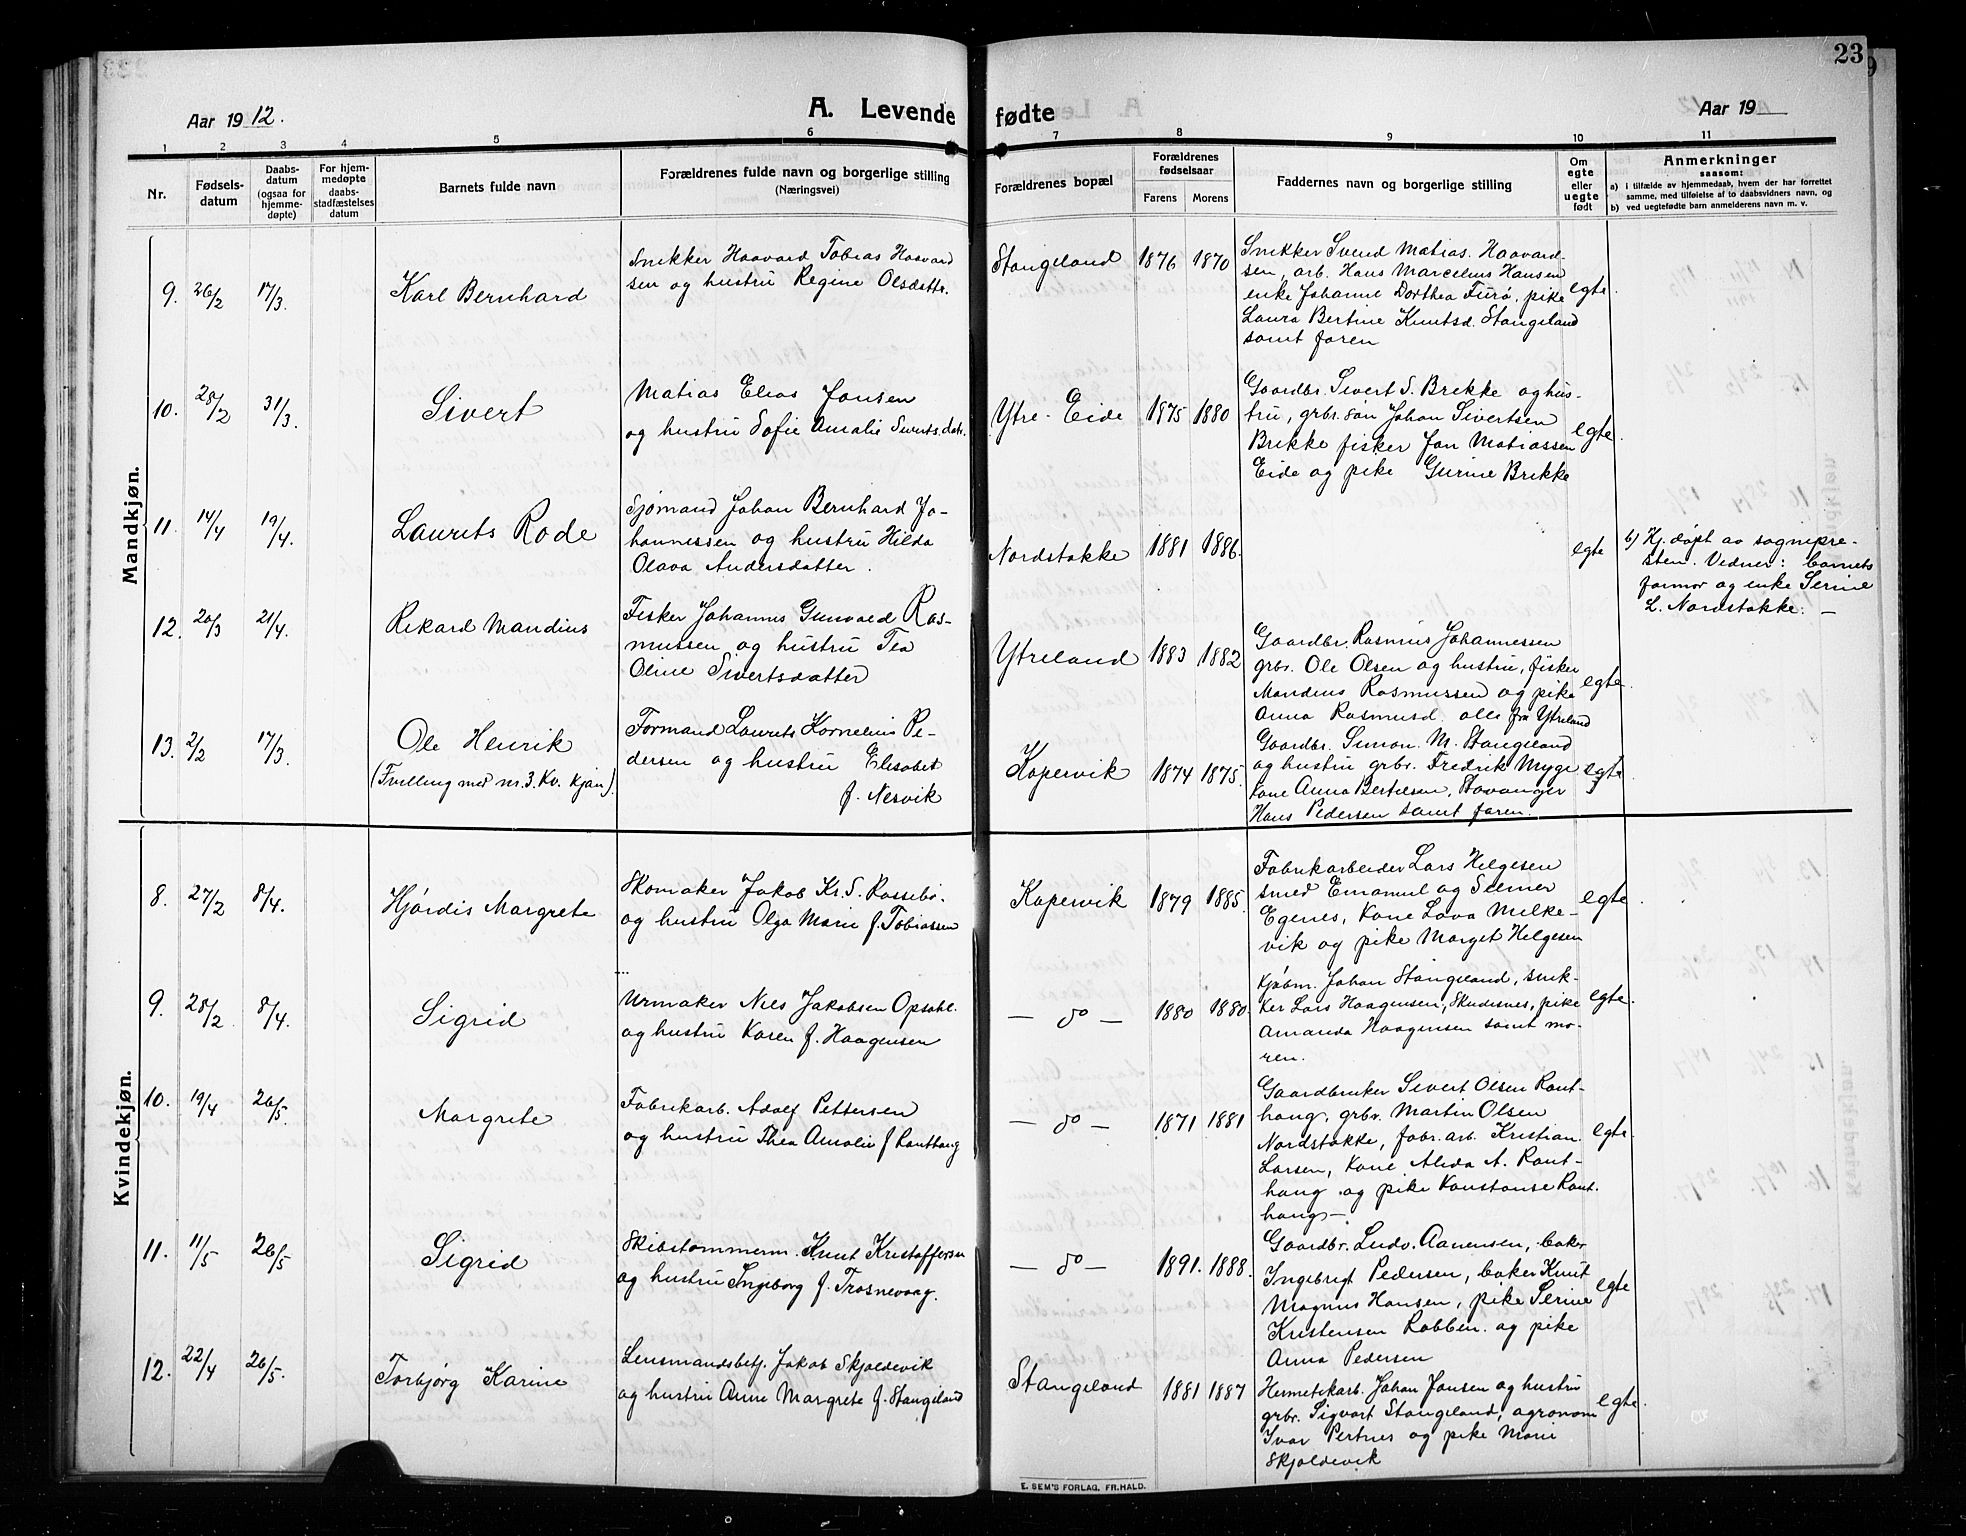 23
Aar 1912.
A. Levende fødte
Aar 19
1 2 3 4 5 6 7 8 9 10 11
Nr.
Fødsels-
datum
Daabs-
datum
(ogsaa for
hjemme-
døpte)
For hjem-
medøpte
daabs-
stadfæstelses
datum
Barnets fulde navn
Forældrenes fulde navn og borgerlige stilling
(Næringsvei)
Forældrenes bopæl
Forældrenes
fødselsaar
Farens Morens
Faddernes navn og borgerlige stilling
Om
egte
eller
uegte
født
Anmerkninger
saasom:
a) i tilfælde av hjemmedaab, hvem der har forrettet
samme, med tilføielse af to daabsvidners navn, og
b) ved uegtefødte barn anmelderens navn m. v.
Mandkjøn.
9. 26/2 17/3. Karl Bernhard
Snikker Haavard Tobias Haavard
sen og hustru Regine Olsdattr.
Stangeland 1876 1870
Snikker Svend Matias Haavard-
sen, arb. Hans Marcelius Hansen
enke Johanne Dorthea Furø, pike
Laura Bertine Knutsd. Stangeland
samt faren
egte.
10. 28/2 31/3. Sivert
Matias Elias Jansen
og hustru Sofie Amalie Siverts.datr.
Ytre-Eide 1875 1880
Gaardbr. Sivert S. Brekke og hus-
tru, grbr.søn Johan Sivertsen
Brekke fisker Jan Matiassen
Eide og pike Gurine Brekke
egte.
11. 14/4 19/4. Laurits Rode
Sjømand Johan Bernhard Jo-
hannessen og hustru Hilda
Olava Andersdatter.
Nordstokke 1881 1886.
egte
b) Hj. døpt av sognepre-
sten. Vedner: barnets
farmor og enke Serine
L. Nordstokke. —
12. 20/3 21/4. Rikard Mandius
Fisker Johannes Gunvald Ras-
mussen og hustru Tea
Oline Sivertsdatter
Ytreland 1883 1882
Gaardbr. Rasmus Johannessen
grbr. Ole Olsen og hustru, fisker
Mandius Rasmussen og pike
Anna Rasmusd. alle fra Ytreland
egte.
13. 2/2 17/3. Ole Henrik
(Tvilling med nr. 3. Kv. kjøn).
Formand Laurits Kornelius Pe-
dersen og hustru Elisabet
f. Nesvik
Kopervik 1874 1875.
Gaardbr. Simon M. Stangeland
og hustru grbr. Fredrik Myge
kone Anna Bertelsen, Stavanger
Hans Pedersen samt faren.
egte
Kvindekjøn.
8. 27/2 8/4. Hjørdis Margrete
Skomaker Jakob Kr. S. Rossebø.
og hustru Olga Marie f. Tobiassen
Kopervik 1879 1885.
Fabrikarbeider Lars Helgesen
smed Emanuel og Selmer
Egenes, kone Lava Melke-
vik og pike Marget Helgesen
egte.
9. 28/2 8/4. Sigrid
Urmaker Nils Jakobsen Opsahl.
og hustru Karen f. Haagensen
— do — 1880 1880.
Kjøbm. Johan Stangeland, snik-
ker Lars Haagensen, Skudesnes, pike
Amanda Haagensen samt mo-
ren.
egte.
10. 19/4 26/5. Margrete
Fabrikarb. Adolf Pettersen
og hustru Thea Amalie f Rønthaug
— do — 1871 1881
Gaardbruker Sivert Olsen Rønt-
haug, grbr. Martin Olsen
Nordstokke, fabr. arb. Kristian
Larsen, kone Alida A. Rønt-
haug og pike Konstanse Rønt.
haug—
egte.
11. 11/5 26/5 Sigrid
Skibstømmerm. Knut Kristoffersen
og hustru Ingeborg f. Trosnevaag.
— do — 1891. 1888.
Gaardbr. Ludv. Aanensen, baker
Ingebrigt Pedersen, baker Knut
Magnus Hansen, pike Serine
Kristensen Robben og pike
Anna Pedersen
egte
12. 22/4 26/5. Torbjørg Karine
Lensmandsbetj. Jakob Skjoldevik
og hustru Anne Margrete f. Stangeland
Stangeland 1881 1887
Hermetikarb. Johan Jansen og hustru
grbr. Sigvart Stangeland, agronom
Ivar Pertnes og pike Marie
Skjoldevik
egte.
E. SEM'S FORLAG. FR.HALD.